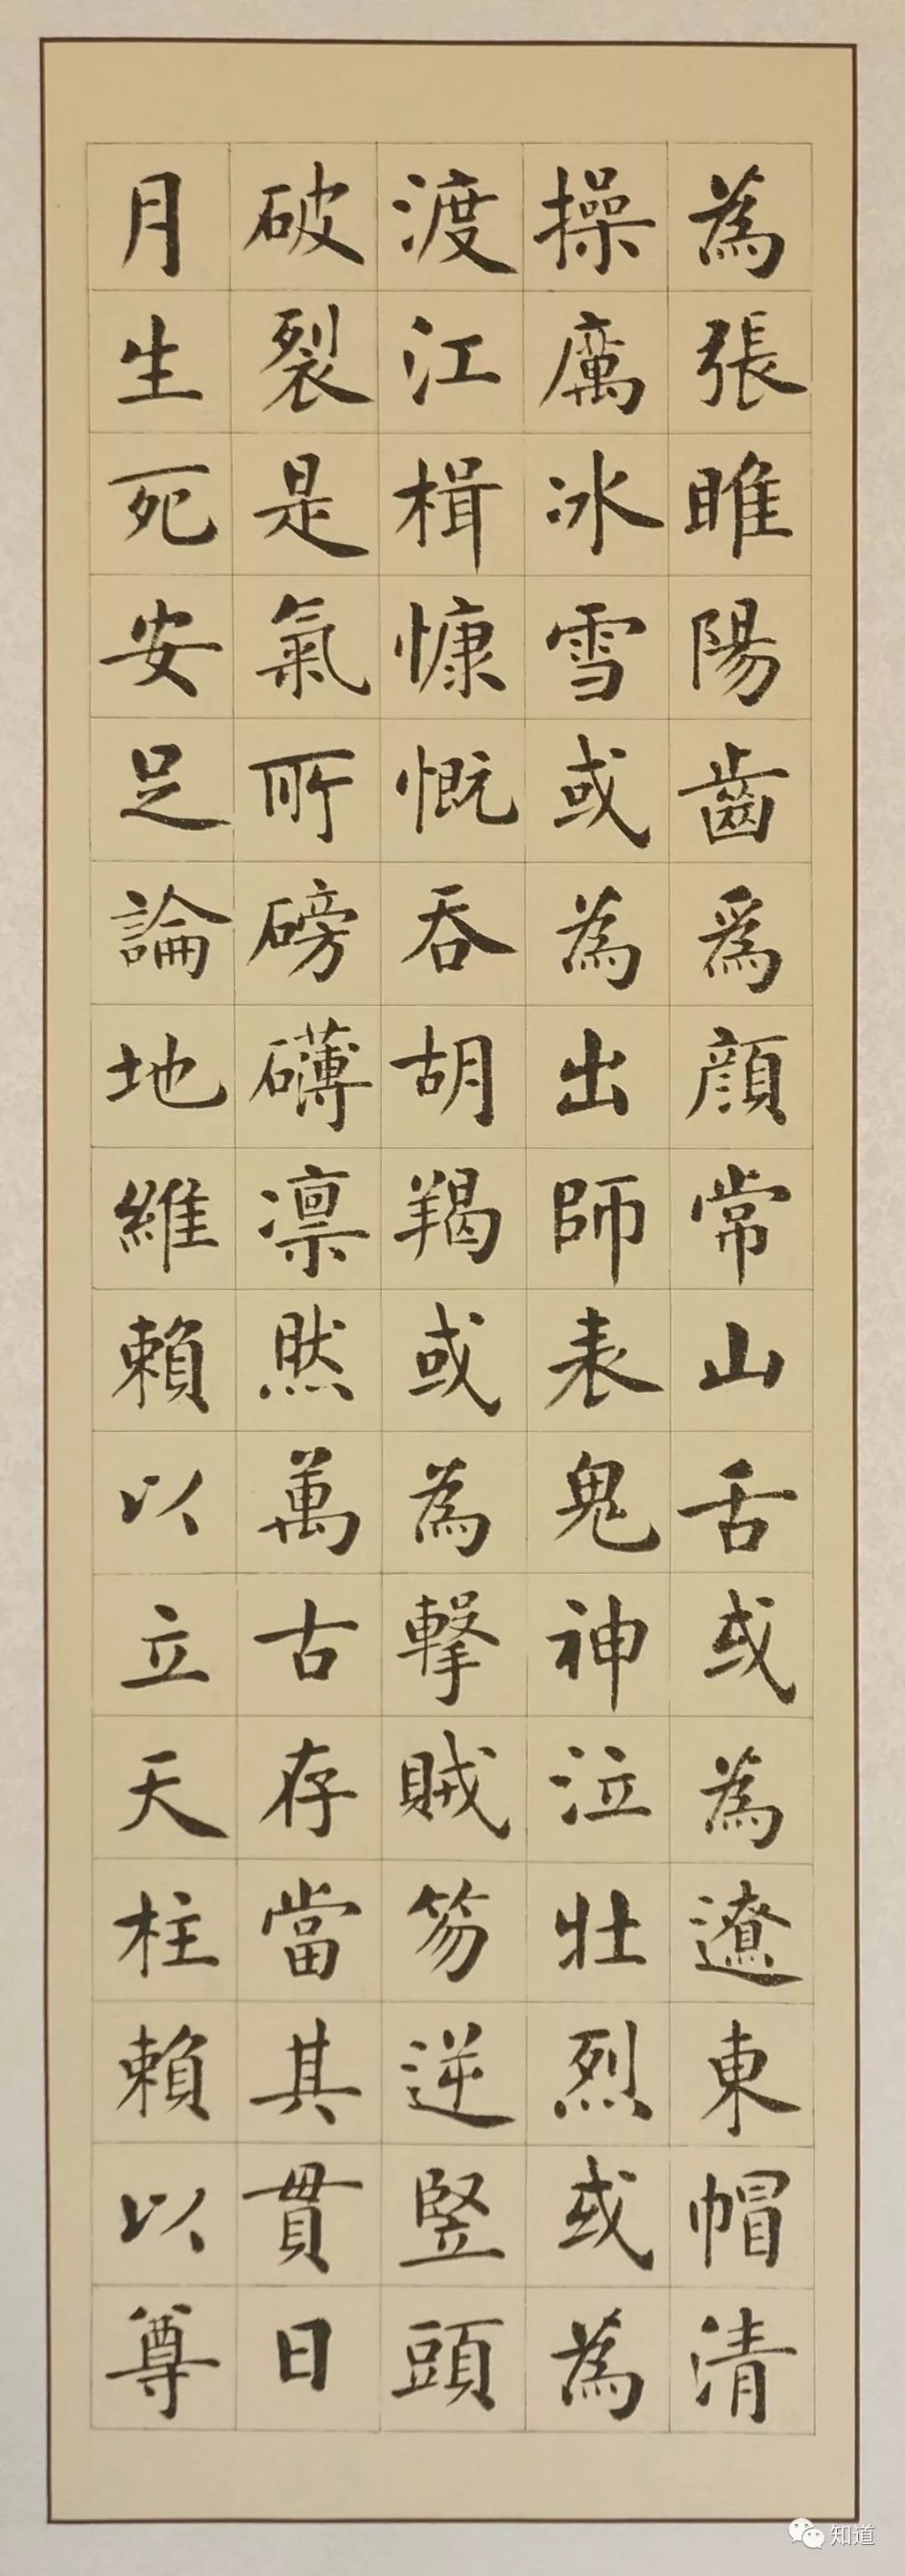 為張睢陽齒爲顔常山舌或為遼東帽清
操厲冰雪或為出師表鬼神泣壯烈或為
渡江楫慷慨吞胡羯或為擊賊笏逆豎頭
破裂是氣所磅礴凛然萬古存當其貫日
月生死安足論地維賴以立天柱賴以尊
知道